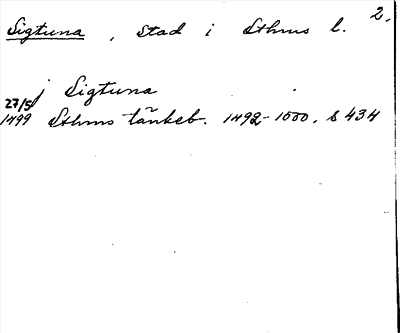 2.
Sigtuna, stad i Sthms l.
j Sigtuna
27/5
1499 Sthms tänkeb. 1492-1500, s 434